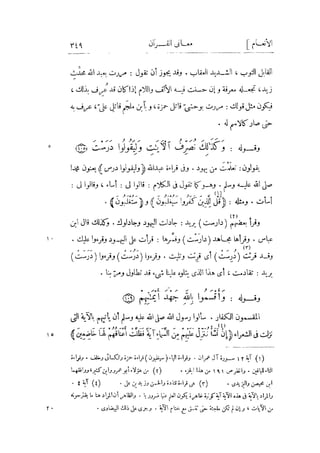 [الأنعام    معانى القرآن    ٣٤٩
القابل التوب ، الشديد العقاب . وقد يجوز أن تقول : مررت بعبد الله محدّث
زيد ، تجعله معرفة وإن حسنت فيه الألف واللام إذا كان قد عُرف بذلك ،
فيكون مثل قولك : مررت بوحشىّ قاتل حمزة ، و بأبن ملجَم قاتل علىّ ، عرف به
حتى صار كالاسم له .
وقــوله : وَكَذَٰلِكَ نُصَرِّفُ ٱلْأٓيَٰتِ وَلِيَقُولُوا دَرَسْتَ (١٠٥) ٥
يقولون : تعلّمت من يهود . وفى قراءة عبدالله (وليقولوا درس) يعنون محمدا
صلى الله عليه وسلم . وهـو كما تقول فى الكلام : قالوا لى : أساء ، وقالوا لى :
أسأت . ومثله : (قُلْ لِلَّذِينَ كَفَرُوا سَيُغْلَبُونَ) و (سَتُغْلَبُونَ) .
وقرأ بعضهم (دارست) يريد : جادلت اليهود وجادلوك . وكذلك قال ابن
عباس . وقرأها مجـاهد (دارَسْتَ) وفسّرها : قرأت على اليهـود وقرءوا عليك . ١٠
وقد قرئت (دُرِسَتْ) أى قرئت وتليت . وقرءوا (دَرُسَتْ) وقرءوا (دَرَسَتْ)
يريد : تقادمت ، أى هذا الذى يتلوه علينا شىء قد تطاول ومرّ بنا .
وقــوله : وَأَقْسَمُوا بِٱللَّهِ جَهْدَ أَيْمَٰنِهِمْ (١٠٩)
المقسمون الكفار . سألوا رسول الله صلى الله عليه وسلم أن يأتيهم بالآية التى
نزلت فى الشعراء (إِنْ نَشَأْ نُنَزِّلْ عَلَيْهِمْ مِنَ السَّمَاءِ آيَةً فَظَلَّتْ أَعْنَاقُهُمْ لَهَا خَاضِعِينَ) ١٥
(١) آية ١٢ سـورة آل عمران . وقراءة الياء (سيغلبون) قراءة حمزة والكسائى وخلف . وقراءة
التاء للباقين . وانظر ص ١٩١ من هذا الجزء . (٢) من هؤلاء أبو عمرو وابن كثير، وافقهما
ابن محيصن واليزيدى . (٣) هى قراءة قتادة والحسن وزيد بن على . (٤) آية ٤ .
من الآيات ، وإن لم تكن ملجئة حتى تتسق مع ختام الآية . وجرى على ذلك البيضاوى . ٢٠